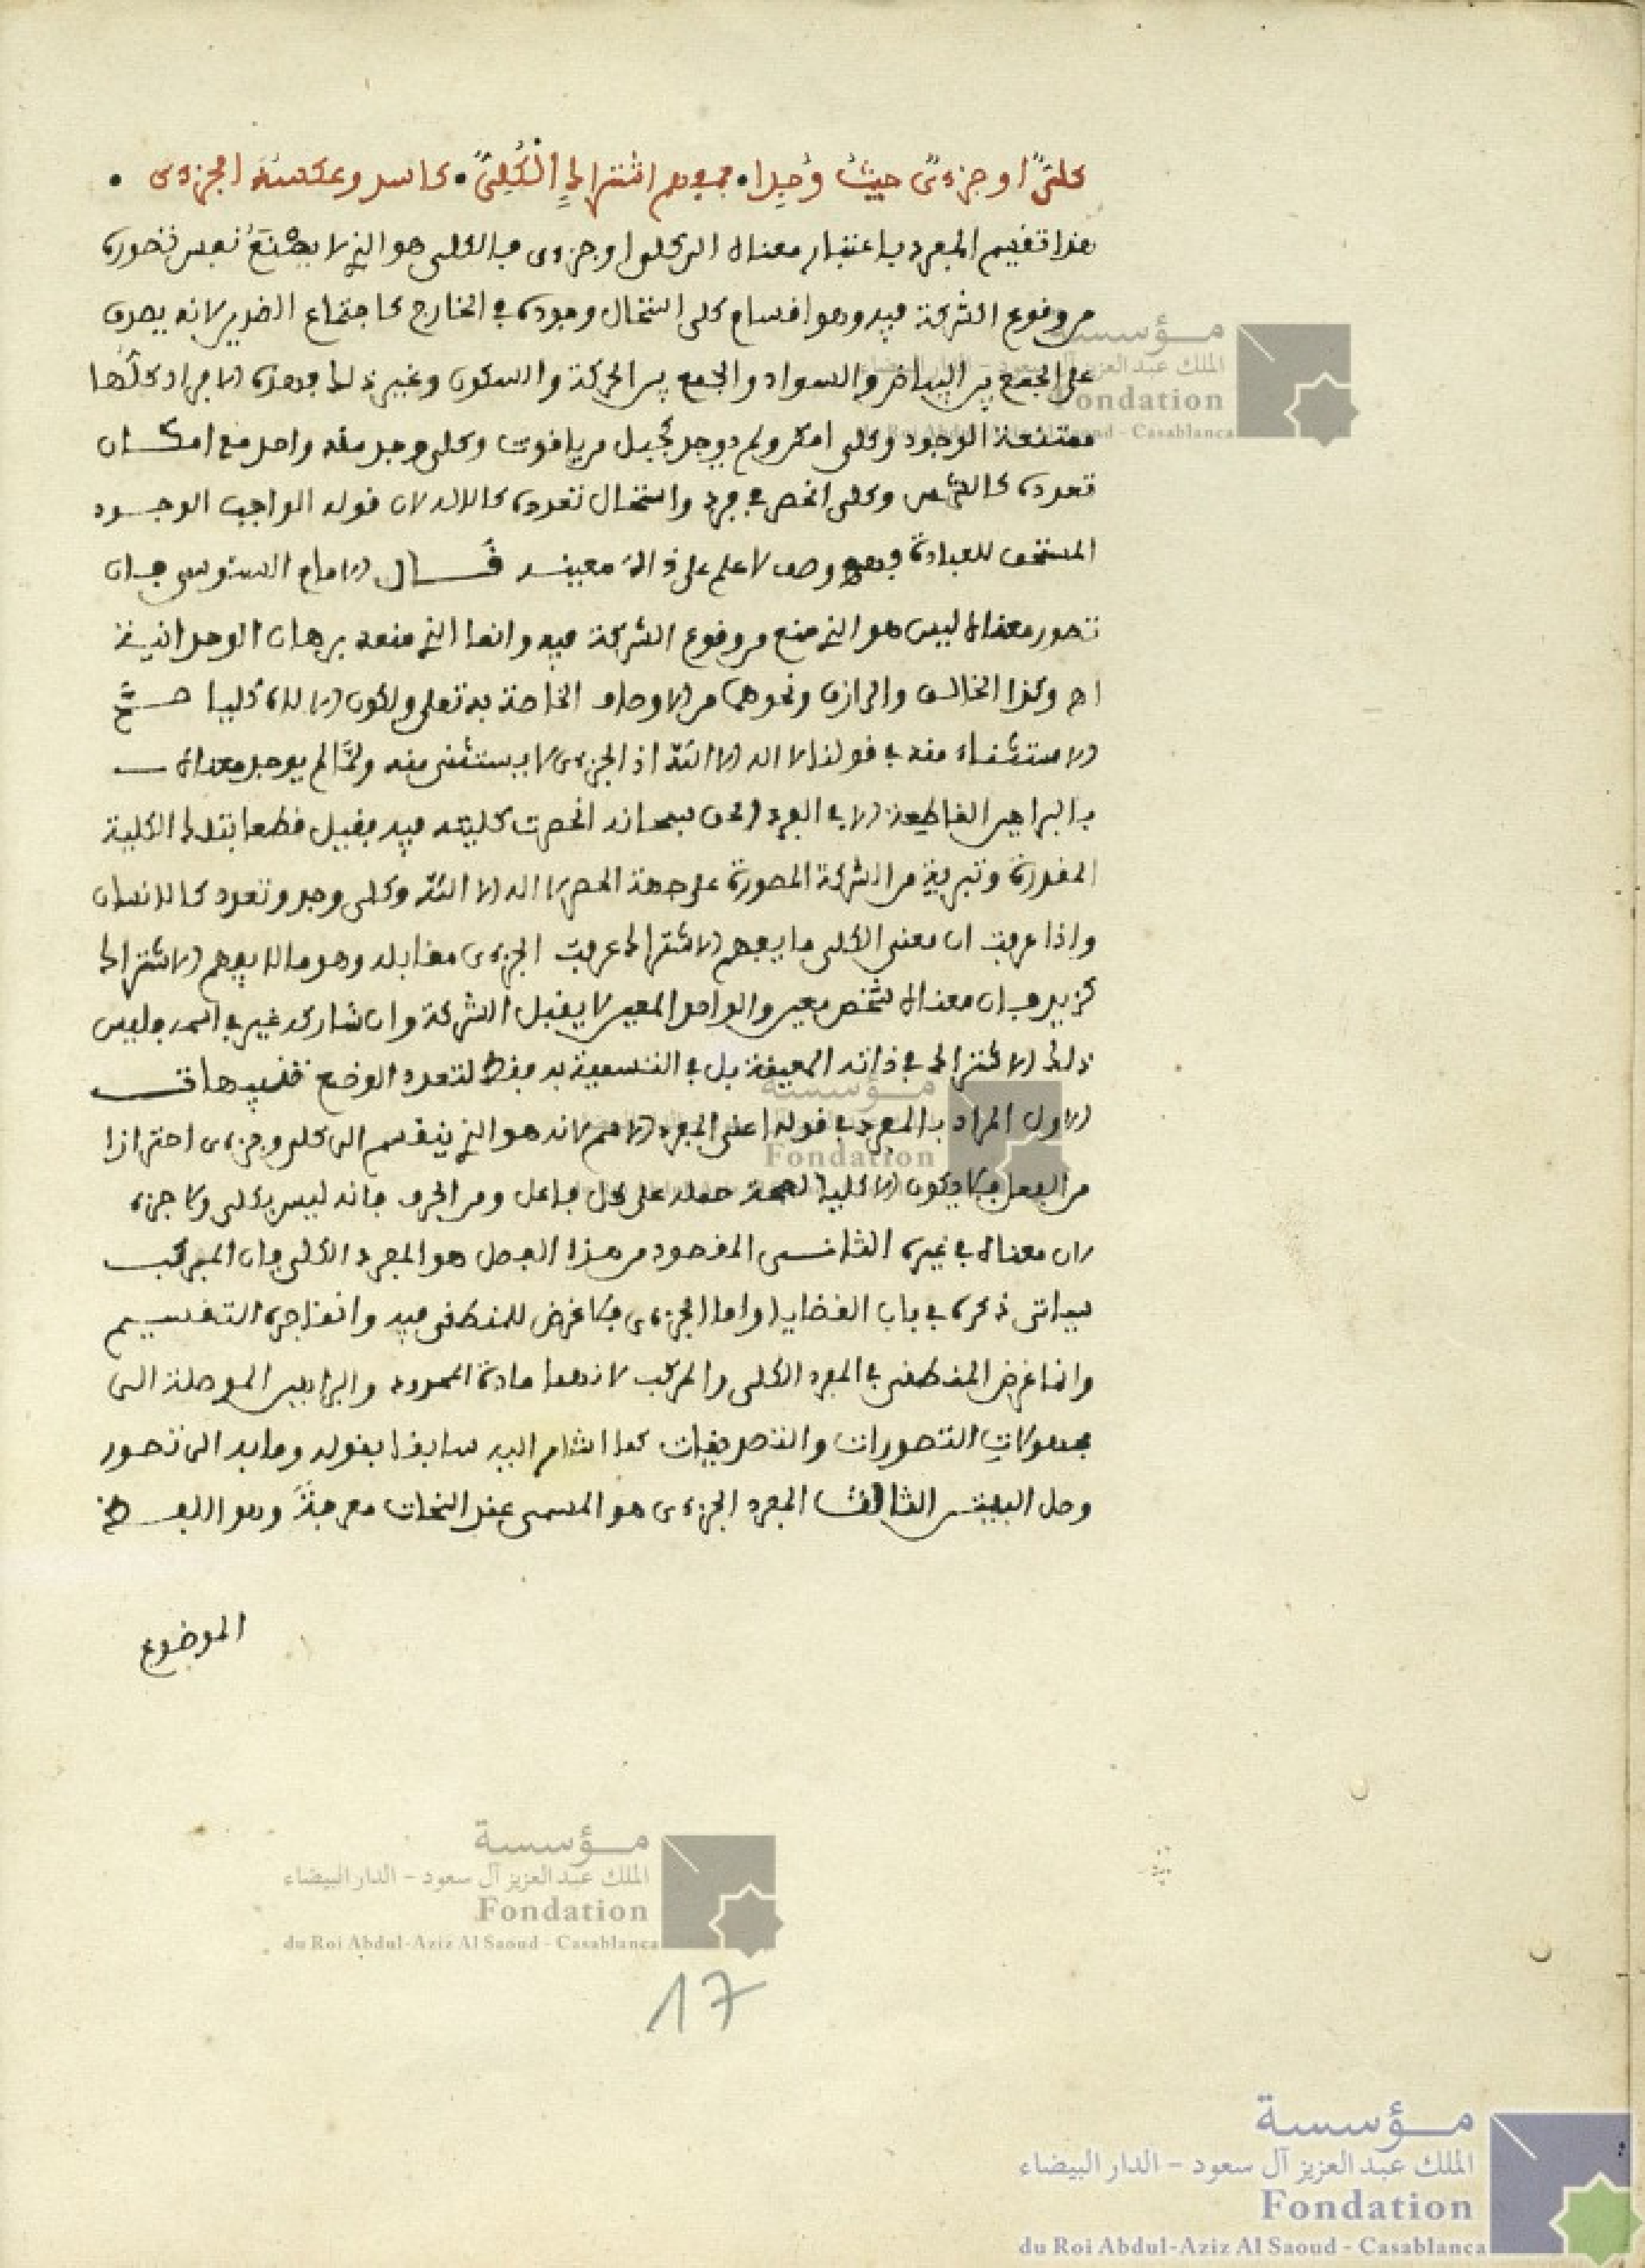 كليًّا او جزءيًّ حيث وُجِدا • فمفهم اشتراكٍ الْكُلِىُّ • كاسد وعكسه الجزءى •
هذا تقسيم المفرد باعتبار معناه الى كلى او جزءى فالكلى هو الذي لا يمْنَعُ نفس تصوره
من وقوع الشركة فيه وهو اقسام كلى استحال وجوده في الخارج كاجتماع الضدين لانه يصدق
على الجمع بين البياض والسواد والجمع بين الحركة والسكون وغير ذلك وهذه الافراد كلُّها
ممتنعة الوجود وكلى امكن ولم يوجد كجبل من ياقوت وكلى وجد منه واحد مع امكان
تعدده كالشمس وكلى انحصر في فرد واستحال تعدده كالاله لان قوله الواجب الوجود
المستحق للعبادة وهو وصف لا علم على ذات معينه قال الامام السنوسى فان
تصور معناه ليس هو الذي منع من وقوع الشركة فيه وانما الذي منعه برهان الوحدانية
اه وكذا الخالق والرازق ونحوهما من الاوصاف الخاصة به تعلى ولكون الاله كليا صح
الاستثناء منه في قولنا لا اله الا الله اذ الجزءى لا يستثنى منه ولمَّا لم يوجد معناه
بالبراهين القاطعة الا في الفرد الحق سبحانه انحصرت كليته فيه فقيل قطعا بتلك الكلية
المقدرة وتبرية من الشركة المصورة على جهة الحصر لا اله الا الله وكلى وجد وتعدد كالانسان
واذا عرفت ان معنى الكلى ما يفهم الاشتراك عرفت الجزءى مقابله وهو ما لا يفهم الاشتراك
كزيد فان معناه شخص معين والواحد المعين لا يقبل الشركة وان شاركه غيره في اسمه فليس
ذلك الاشتراك في ذاته المعينة بل في التسمية به فقط لتعدد الوضع تنبيهات
الاول المراد بالمفرد في قوله اعنى المفرد الاسم لانه هو الذي ينقسم الى كلى وجزءى احترازا
من الفعل فلا يكون الا كليا لصحة حمله على كل فاعل ومن الحرف فانه ليس بكلى ولا جزء
لان معناه في غيره الثانى المقصود من هذا الفصل هو المفرد الكلى فان المركب
سياتى ذكره في باب القضايا واما الجزءى فلا غرض للمنطقى فيه وانما جره التقسيم
وانما غرض المنطقى في المفرد الكلى والمركب لانهما مادة الحدود والبراهين الموصلة الى
مجهولات التصورات والتصديقات كما اشار اليه سابقا بقوله وما به الى تصور
وصل البيتين الثالث المفرد الجزءى هو المسمى عند النحات معرفةً وهو اللفظ
الموضوع
17
مؤسسة
الملك عبد العزيز آل سعود - الدار البيضاء
Fondation
du Roi Abdul-Aziz Al Saoud - Casablanca